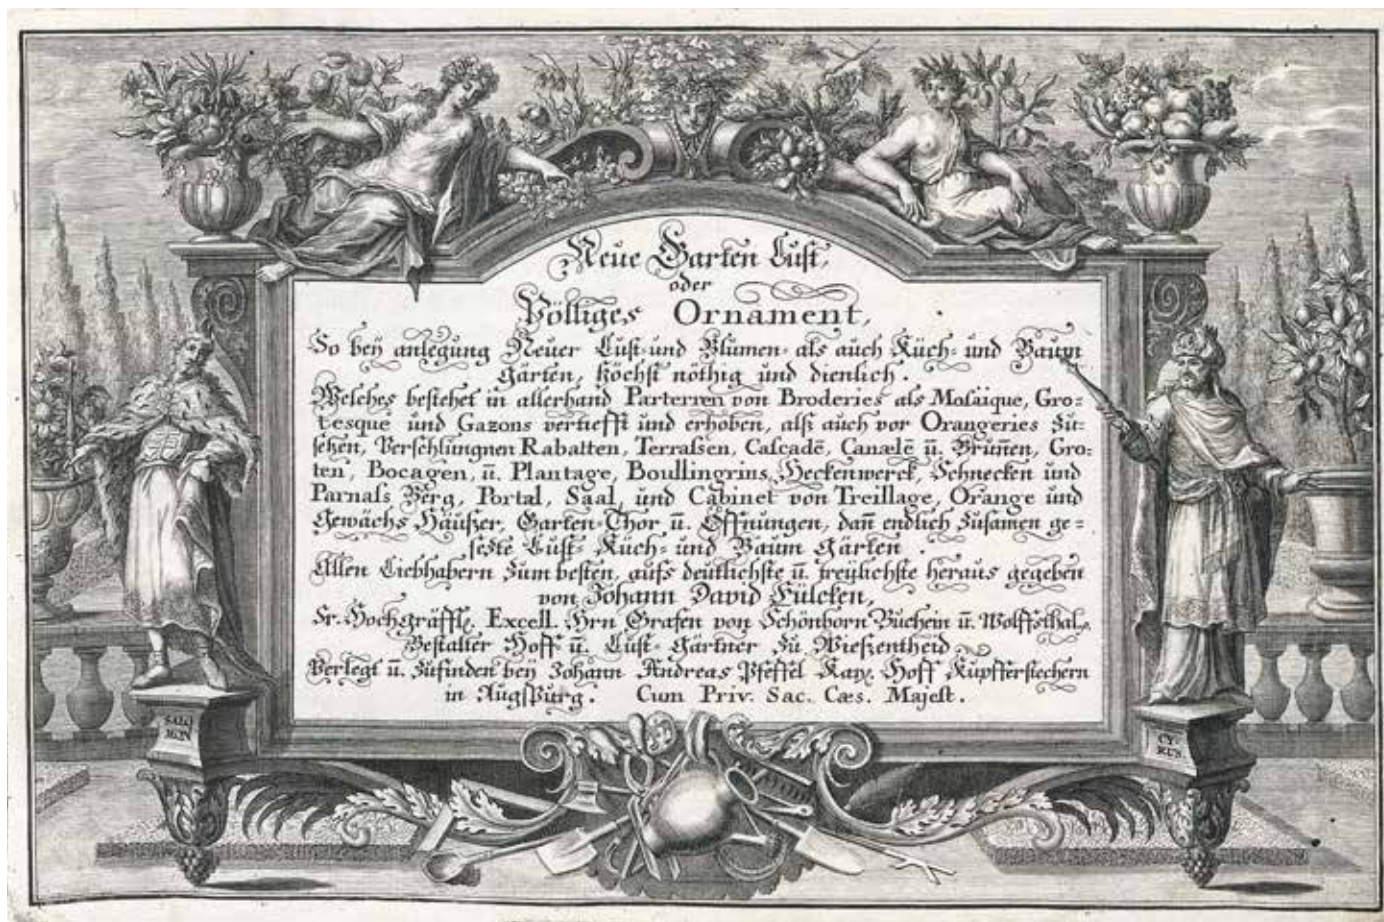 Neue Garten Lust,
oder
Völliges Ornament,
So beÿ anlegung Neuer Lust- und Blumen- als auch Küch- und Baum
Gärten, höchst nöthig und dienlich.
Welches bestehet in allerhand Parterren von Broderies als Mosaique, Gro-
tesque und Gazons vertiefft und erhoben, alß auch vor Orangeries zu-
sehen, Verschlungnen Rabatten, Terrassen, Cascadē, Canælē ū. Brunen̄, Gro-
ten, Bocagen, ū. Plantage, Boullingrins, Heckenwerck, Schnecken und
Parnass Berg, Portal, Saal, und Cabinet von Treillage, Orange und
Gewächs Häußer, Garten-Thor ū. Öffnungen, dan̄ endlich zusamen ge-
sezte Lust- Küch- und Baum Gärten.
Allen Liebhabern zum besten, aufs deutlichste ū. treülichste heraus gegeben
von Johann David Fülcken,
Sr. Hochgräffle. Excell. Hrn Grafen von Schönborn Bucheim ū. Wolffsthal.
Bestalter Hoff ū. Lust-Gärtner zu Wiesentheid.
Verlegt ū. zufinden beÿ Johann Andreas Pfeffel Kaÿ. Hoff Kupfferstechern
in Augspurg. Cum Priv. Sac. Cæs. Majest.
SALO
MON
CY-
RUS